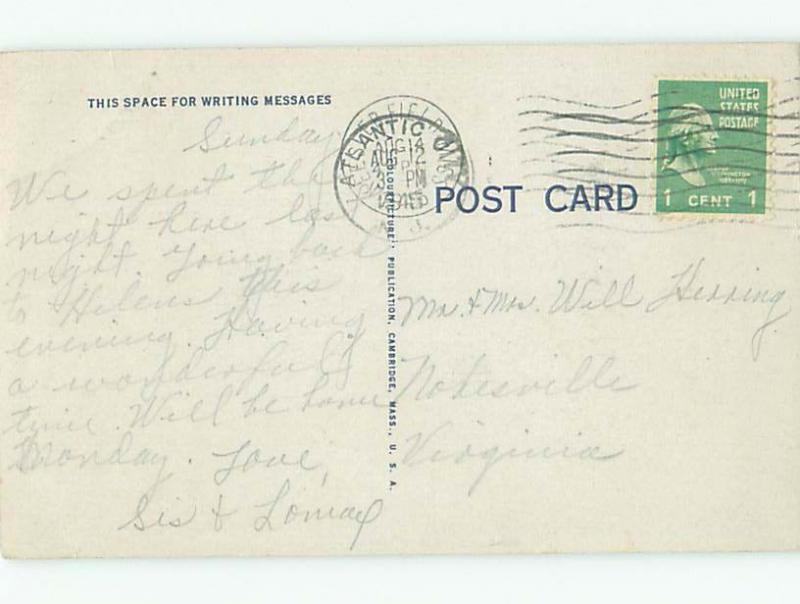 THIS SPACE FOR WRITING MESSAGES
Sunday
We spent the
night here last
night. Going back
to Helens this
evening. Having
a wonderful
time. Will be home
Monday. Love,
Sis & Lomax
"COLOURPICTURE" PUBLICATION, CAMBRIDGE, MASS., U. S. A.
ATLANTIC
AUG 12
PM
POST CARD
UNITED
STATES
POSTAGE
1 CENT 1
Mr. & Mrs. Will Herring
Nokesville
Virginia